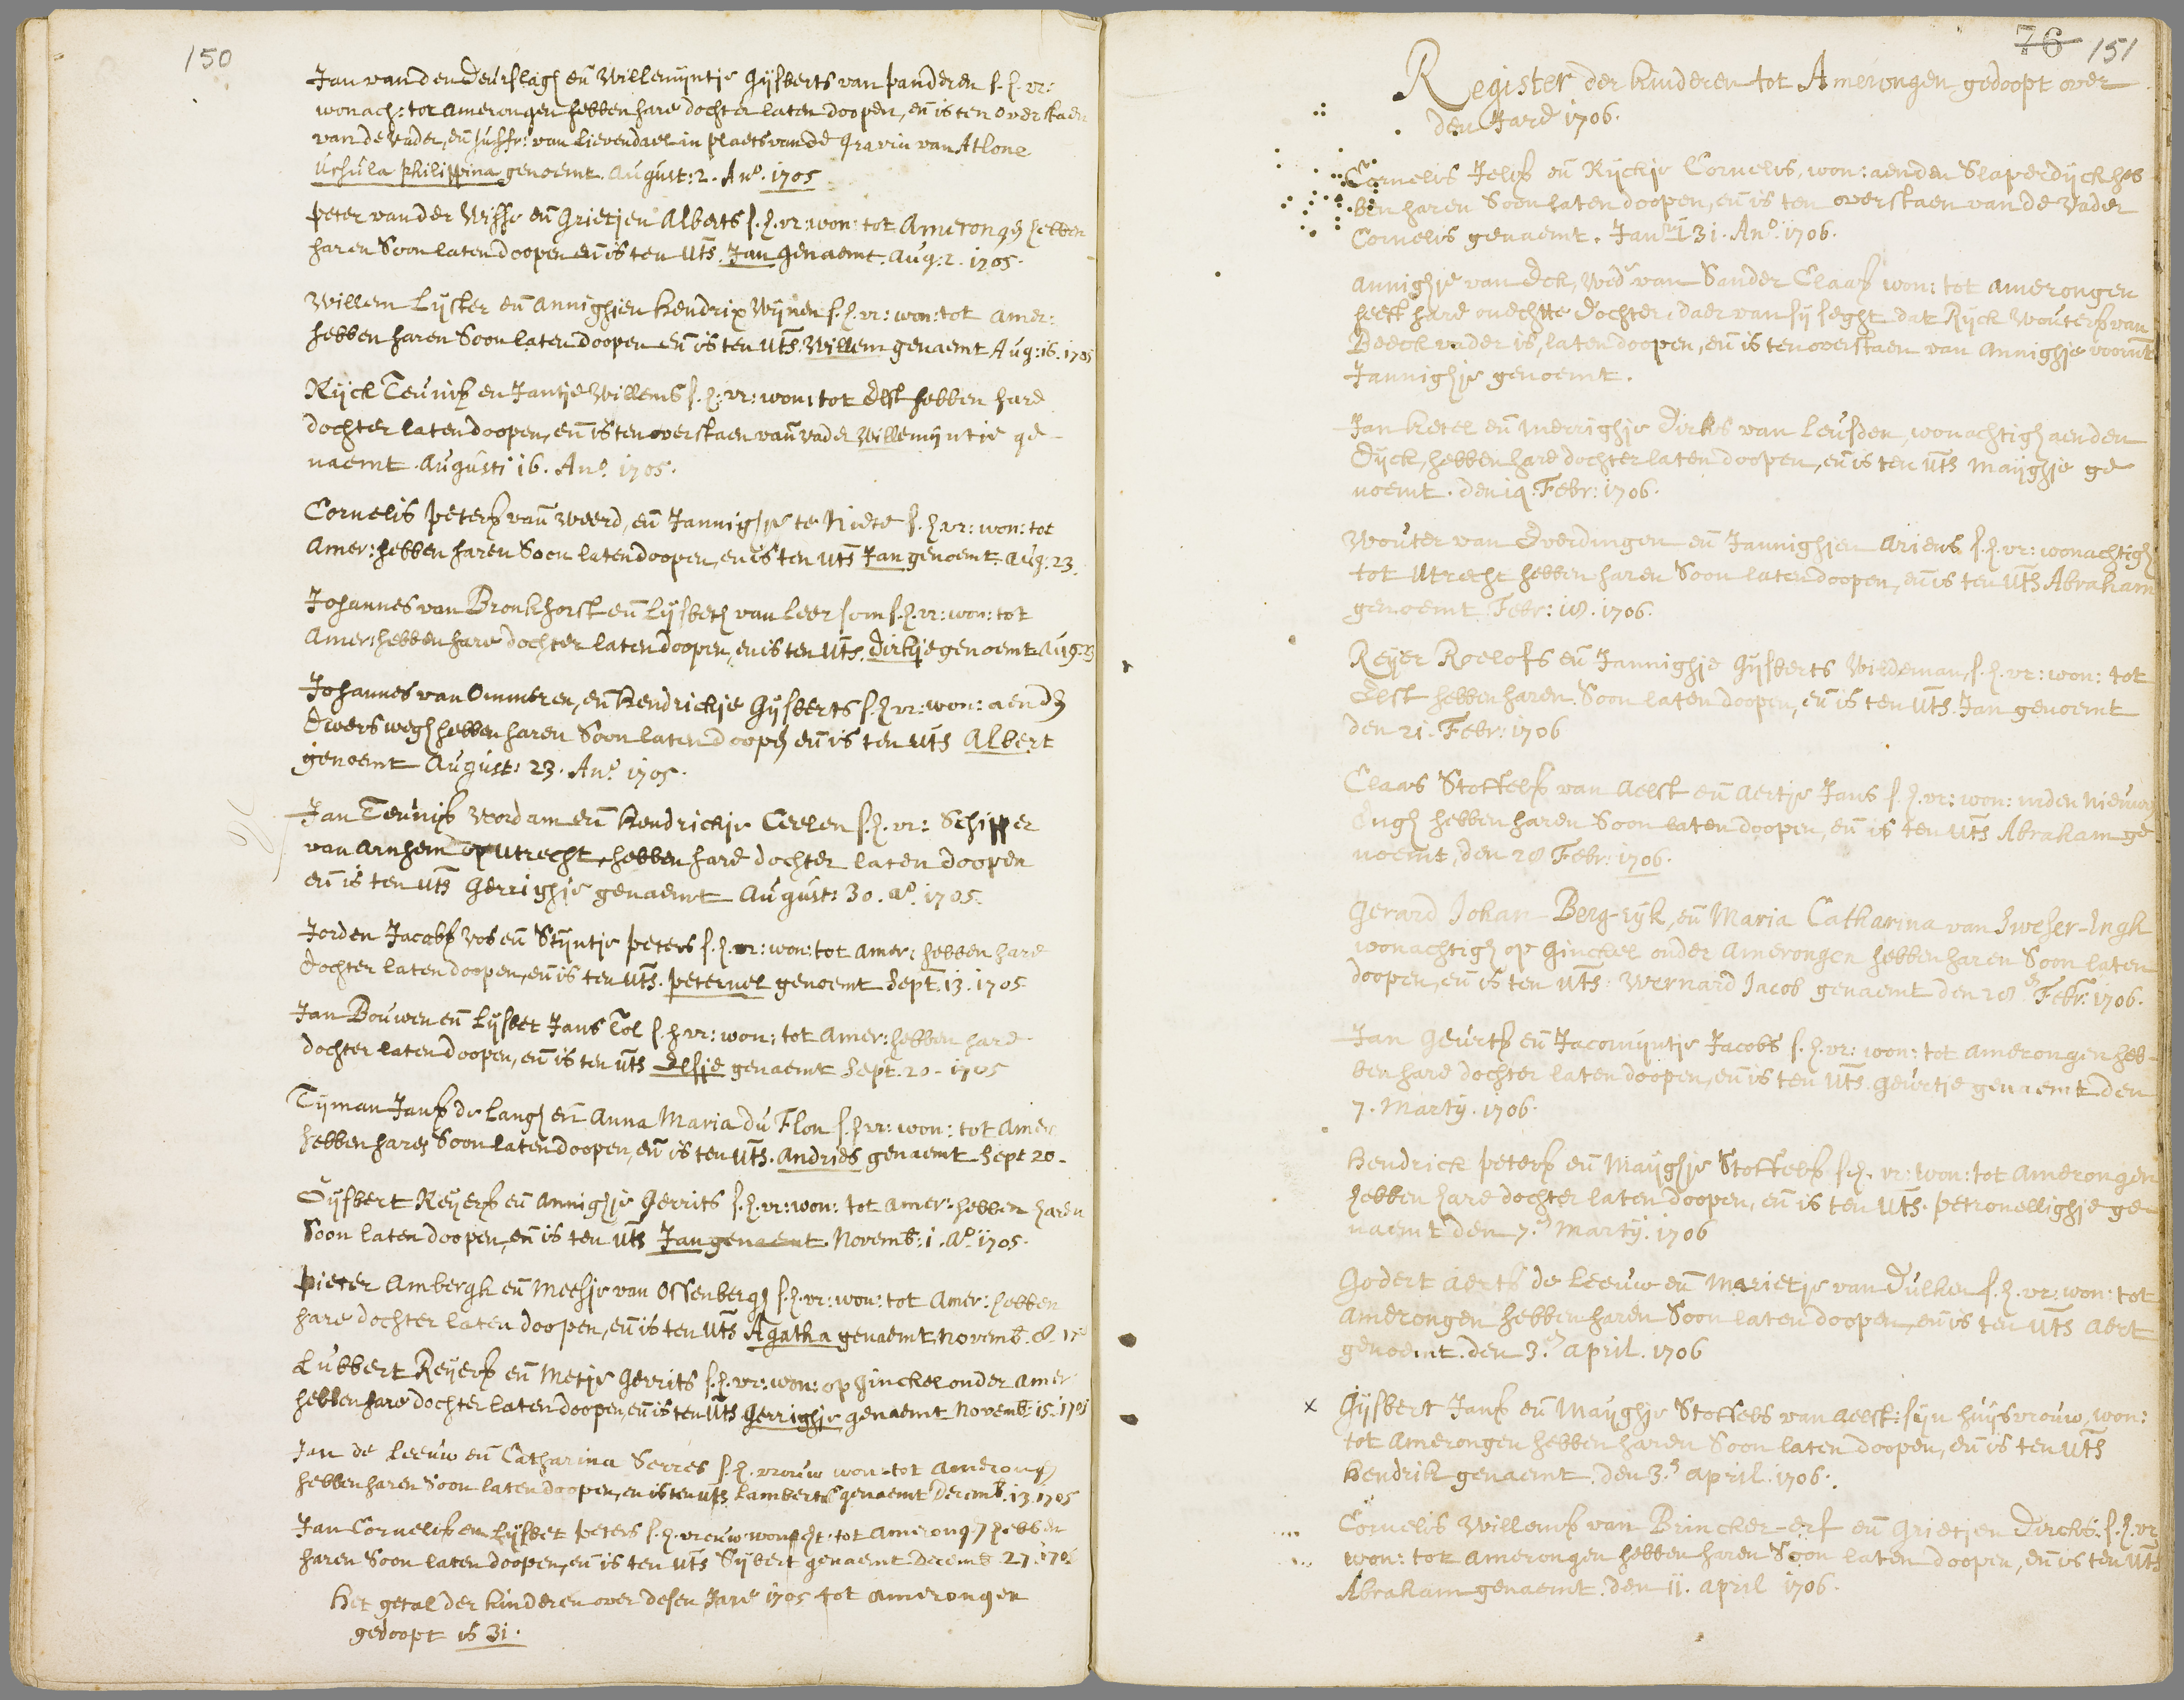 150
Jan van den Deurslagh eñ Willemijntje Gijsberts van Panderen s. h. vr:
wonach: tot Amerongen hebben hare dochter laten doopen, eñ is ten overstaen
van de vader, eñ Juffr: van Lievendael in plaets van de Gravin van Atlone
Ursula Philippina genoemt. August: 2. Ano. 1705
Peter van der Wisse eñ Grietjen Alberts s. h. vr: won: tot Amerongen hebben
haren Soon laten doopen eñ is ten uts. Jan genaemt. Aug: 2. 1705.
Willem Lijster eñ Annighjen Hendrix Wijnen s. h. vr: won: tot Amer:
hebben haren Soon laten doopen eñ is ten uts. Willem genaemt Aug: 16. 1705
Rijck Teunisz en Jantje Willems s. h: vr: won: tot Elst hebben hare
dochter laten doopen, eñ is ten overstaen vañ vader Willemijntje ge-
naemt. Augusti 16. Ano. 1705.
Cornelis Petersz vañ Weerd, eñ Jannighje te Niete s. h. vr: won: tot
Amer: hebben haren Soon laten doopen, en is ten uts Jan genoemt. Aug. 23.
Johannes van Bronkhorst eñ Lijsbeth van Leersom s. h. vr: won: tot
Amer: hebben hare dochter laten doopen, en is ten uts. Dirkje genoemt Aug. 23
Johannes van Ommeren, eñ Hendrickje Gijsberts s. h. vr: won: aen den
Dwers wegh hebben haren Soon laten doopen eñ is ten uts Albert
genoemt August: 23. Ano. 1705.
Jan Teunisz Verdam eñ Hendrickje Ceelen s. h. vr: Schipper
van Arnhem op Utrecht, hebben hare dochter laten doopen
eñ is ten uts Gerrighje genaemt August: 30. Ao. 1705.
Jorden Jacobsz Vos eñ Stijntje Peters s. h. vr: won: tot Amer: hebben hare
dochter laten doopen, eñ is ten uts. Peternel genoemt Sept. 13. 1705
Jan Bouwen eñ Lijsbet Jans Tol s. h vr: won: tot Amer: hebben hare
dochter laten doopen, eñ is ten uts Elsje genaemt Sept. 20. 1705
Tijman Jansz de Langh eñ Anna Maria du Flon s. h vr: won: tot Amer
hebben haren Soon laten doopen, eñ is ten uts. Andries genaemt Sept 20.
Gijsbert Reijersz eñ Annighje Gerrits s. h. vr: won: tot Amer: hebben haren
Soon laten doopen, eñ is ten uts Jan genaemt Novemb: 1. Ao. 1705.
Pieter Ambergh eñ Meesje van Ossenbergh s. h. vr: won: tot Amer: hebben
hare dochter laten doopen, eñ is ten uts Agatha genaemt Novemb. 8. 170
Lubbert Reijersz eñ Metje Gerrits s. h. vr: won: op Ginckel onder Amer
hebben hare dochter laten doopen, eñ is ten uts Gerrighje genaemt Novemb: 15. 1705
Jan de Leeuw eñ Catharina Serres s. h. vrouw won: tot Amerongen
hebben haren Soon laten doopen, en is ten uts Lambertus genaemt Decemb. 13. 1705
Jan Cornelisz en Lijsbet Peters s. h. vrouw wonacht: tot Amerongen hebben
haren Soon laten doopen, eñ is ten uts Sijbert genaemt Decemb 27. 1705
Het getal der kinderen over desen Jare 1705 tot Amerongen
gedoopt is 31.
76 151
Register der kinderen tot Amerongen gedoopt over
den Jare 1706.
Cornelis Jelisz eñ Rijckje Cornelis, won: aen den Slaperdijck heb
ben haren Soon laten doopen, eñ is ten overstaen van de vader
Cornelis genaemt. Janu: 31. Ano. 1706.
Annighje van Eck, Wede van Sander Claasz won: tot Amerongen
heeft hare onechte Dochter, daer van sij seght dat Rijck Woutersz van
Beeck vader is, laten doopen, eñ is ten overstaen van Annighje voornt
Jannighje genoemt.
Jan Ketel eñ Merrighje Dirks van Leusden, wonachtigh aen den
Dijck, hebben hare dochter laten doopen, eñ is ten uts Maijghje ge
noemt. den 14. Febr: 1706.
Wouter van Everdingen eñ Jannighjen Ariens s. h. vr: wonachtigh
tot Utrecht hebben haren Soon laten doopen, eñ is ten uts Abraham
genoemt Febr: 18. 1706.
Reijer Roelofs eñ Jannighje Gijsberts Wildeman, s. h. vr: won: tot
Elst hebben haren Soon laten doopen, eñ is ten uts. Jan genoemt
den 21. Febr: 1706
Claas Stoffelsz van Aelst eñ Aertje Jans s. h. vr: won: inden Nieuwen
Engh hebben haren Soon laten doopen, eñ is ten uts Abraham ge
noemt, den 28 Febr: 1706.
Gerard Johan Berg-eyk, eñ Maria Catharina van Sweser-Engh
wonachtigh op Ginckel onder Amerongen hebben haren Soon laten
doopen, eñ is ten uts: Wernard Jacob genaemt den 28 Febr: 1706.
Jan Geurtsz eñ Jacomijntje Jacobs s. h. vr: won: tot Amerongen heb-
ben hare dochter laten doopen, eñ is ten uts. Geurtje genaemt den
7. Martij. 1706.
Hendrick Petersz eñ Maijghje Stoffelsz s. h. vr: won: tot Amerongen
hebben hare dochter laten doopen, eñ is ten uts. Petronellighje ge
naemt den 7. Martij. 1706
Godert Aerts de Leeuw eñ Marietje van Dulken s. h. vr: won: tot
Amerongen hebben haren Soon laten doopen, eñ is ten uts Aert
genoemt. den 3. April. 1706
x Gijsbert Jansz eñ Maijghje Stoffels van Aelst: sijn huijsvrouw, won:
tot Amerongen hebben haren Soon laten doopen, eñ is ten uts
Hendrik genaemt. den 3. April. 1706.
Cornelis Willemsz van Brincker-erf eñ Grietjen Dircks. s. h. vr
won: tot Amerongen hebben haren Soon laten doopen, eñ is ten uts
Abraham genaemt. den 11. April 1706.